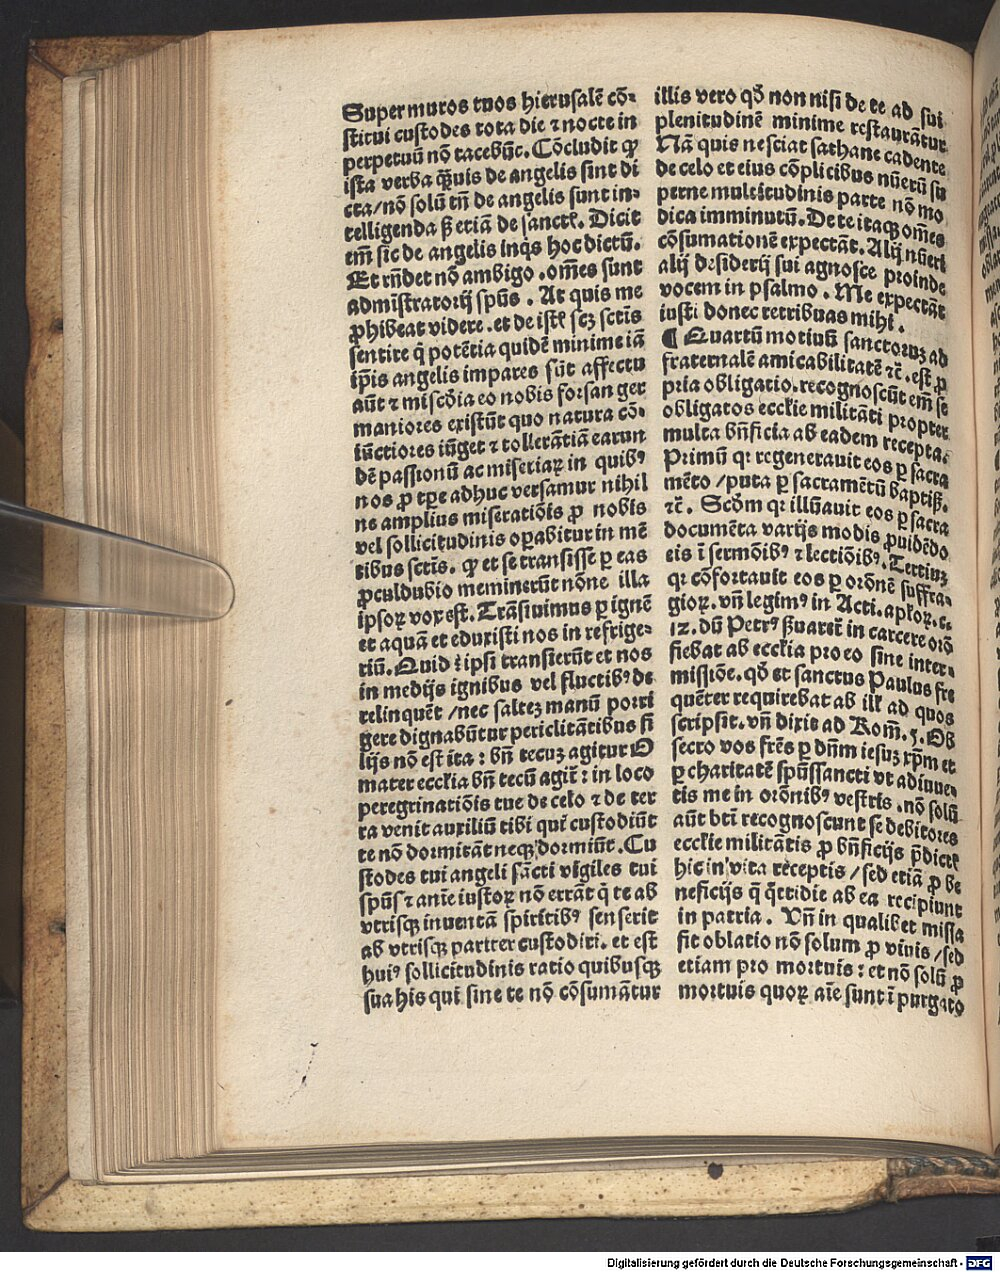 Super muros tuos hierusalē cō⸗
stitui custodes tota die ⁊ nocte in
perpetuū nō tacebūt. Cōcludit ꝙ
ista verba ꝙ̄uis de angelis sint di
cta/nō solū tn̄ de angelis sunt in⸗
telligenda ß etiā de sanctꝭ. Dicit
em̄ sic de angelis inqͥs hoc dictū.
Et rn̄det nō ambigo. om̄es sunt
administratorij spūs. At quis me
ꝓhibeat videre. et de istꝭ scꝫ sctīs
sentire q̇ potētia quidē minime iā
ip̄is angelis impares sūt affectu
aūt ⁊ misc̄dia eo nobis forsan ger
maniores existūt quo natura cō⸗
iūctiores iūget ⁊ tollerātiā earun
dē passionū ac miseriaꝝ in quibꝰ
nos ꝓ tp̄e adhuc versamur nihil
ne amplius miseratiōis ꝓ nobis
vel sollicitudinis oꝑabitur in mē
tibus sctīs. ꝙ et se transisse ꝑ eas
ꝓculdubio meminerūt nōne illa
ipsoꝝ vox est. Trāsiuimus ꝑ ignē
et aquā et eduxisti nos in refrige⸗
riū. Quid ⁊ ipsi transierūt et nos
in medijs ignibus vel fluctibꝰ de
relinquēt/nec salteꝫ manū porri
gere dignabūtur periclitātibus fi
lijs nō est ita: bn̄ tecuꝫ agitur O
mater ecclīa bn̄ tecū agit̄: in loco
peregrinatiōis tue de celo ⁊ de ter
ra venit auxiliū tibi qui custodiūt
te nō dormitāt neqꝫ dormiūt. Cu
stodes tui angeli sācti vigiles tui
spūs ⁊ anīe iustoꝝ nō errāt q̇ te ab
vtrisqꝫ inuentā spiritibꝰ senserit
ab vtrisqꝫ pariter custodiri. et est
huiꝰ sollicitudinis ratio quibusqꝫ
sua his qui sine te nō cōsumātur
illis vero qđ non nisi de te ad sui
plenitudinē minime restaurātur
Nā quis nesciat sathane cadente
de celo et eius cōplicibus nūerū su
perne multitudinis parte nō mo
dica imminutū. De te itaqꝫ om̄es
cōsumationē expectāt. Alij nūeri
alij desiderij sui agnosce proinde
vocem in psalmo. Me expectāt
iusti donec retribuas mihi.
¶ Quartū motiuū sanctoruꝫ ad
fraternalē amicabilitatē ⁊c̄. est ꝓ
pria obligatio. recognoscūt em̄ se
obligatos ecclīe militāti propter
multa bn̄ficia ab eadem recepta.
Primū qꝛ regenerauit eos ꝑ sacra
mēto/puta ꝑ sacramētū baptiß.
⁊c̄. Scd̄m qꝛ illūauit eos ꝑ sacra
documēta varijs modis ꝓuidēdo
eis ī sermōibꝰ ⁊ lectiōibꝰ. Tertiuꝫ
qꝛ cōfortauit eos ꝑ orōnē suffra⸗
gioꝝ. vn̄ legimꝰ in Acti. aplōꝝ. c.
12. dū Petrꝰ ßuaret̄ in carcere orō
fiebat ab ecclīa pro eo sine inter⸗
missiōe. qđ et sanctus Paulus fre
quēter requirebat ab illꝭ ad quos
scripsit. vn̄ dixit ad Rom̄. 5. Ob
secro vos frēs ꝑ dn̄m iesuꝫ xp̄m et
ꝑ charitatē spūssancti vt adiuue⸗
tis me in orōnibꝰ vestris. nō solū
aūt bt̄i recognoscunt se debitores
ecclīe militātis ꝓ bn̄ficijs p̄dictꝭ
hic in vita receptis/sed etiā ꝓ be
neficijs q̄ q̄ttidie ab ea recipiunt
in patria. Vn̄ in qualibet missa
fit oblatio nō solum ꝓ viuis/sed
etiam pro mortuis: et nō solū ꝓ
mortuis quoꝝ aīe sunt ī purgato
Digitalisierung gefördert durch die Deutsche Forschungsgemeinschaft - DFG